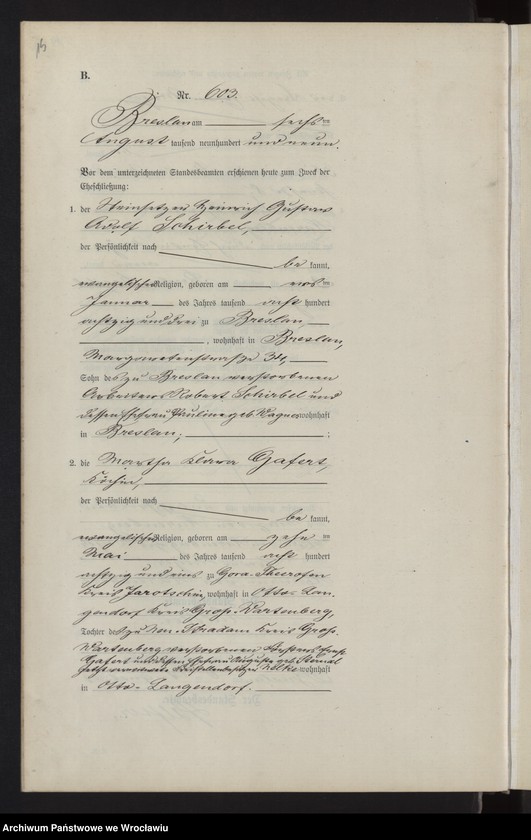 B.
Nr. 603.
Breslau am sechsten
August tausend neunhundert und neun.
Vor dem unterzeichneten Standesbeamten erschienen heute zum Zweck der
Eheschließung:
1. der Steinsetzer Heinrich Gustav
Adolf Schirbel,
der Persönlichkeit nach
be kannt,
evangelischer Religion, geboren am ersten
Januar des Jahres tausend acht hundert
achtzig und drei zu Breslau,
, wohnhaft in Breslau,
Margaretenstraße 34,
Sohn des zu Breslau verstorbenen
Arbeiters Robert Schirbel und
dessen Ehefrau Pauline geb. wohnhaft
in Breslau;
2. die Martha Klara Gafert,
Köchin,
der Persönlichkeit nach
be kannt,
evangelischer Religion, geboren am zehn ten
Mai des Jahres tausend acht hundert
achtzig und eins zu Gora
Kreis Jarotschin, wohnhaft in Otto-Lan-
gendorf Kreis Groß-Wartenberg,
Tochter des zu Neu-Stradam Kreis Groß-
Wartenberg verstorbenen
Gafert und dessen Ehefrau Auguste geb.
jetzt wohnhaft
in Otto-Langendorf.
Archiwum Państwowe we Wrocławiu